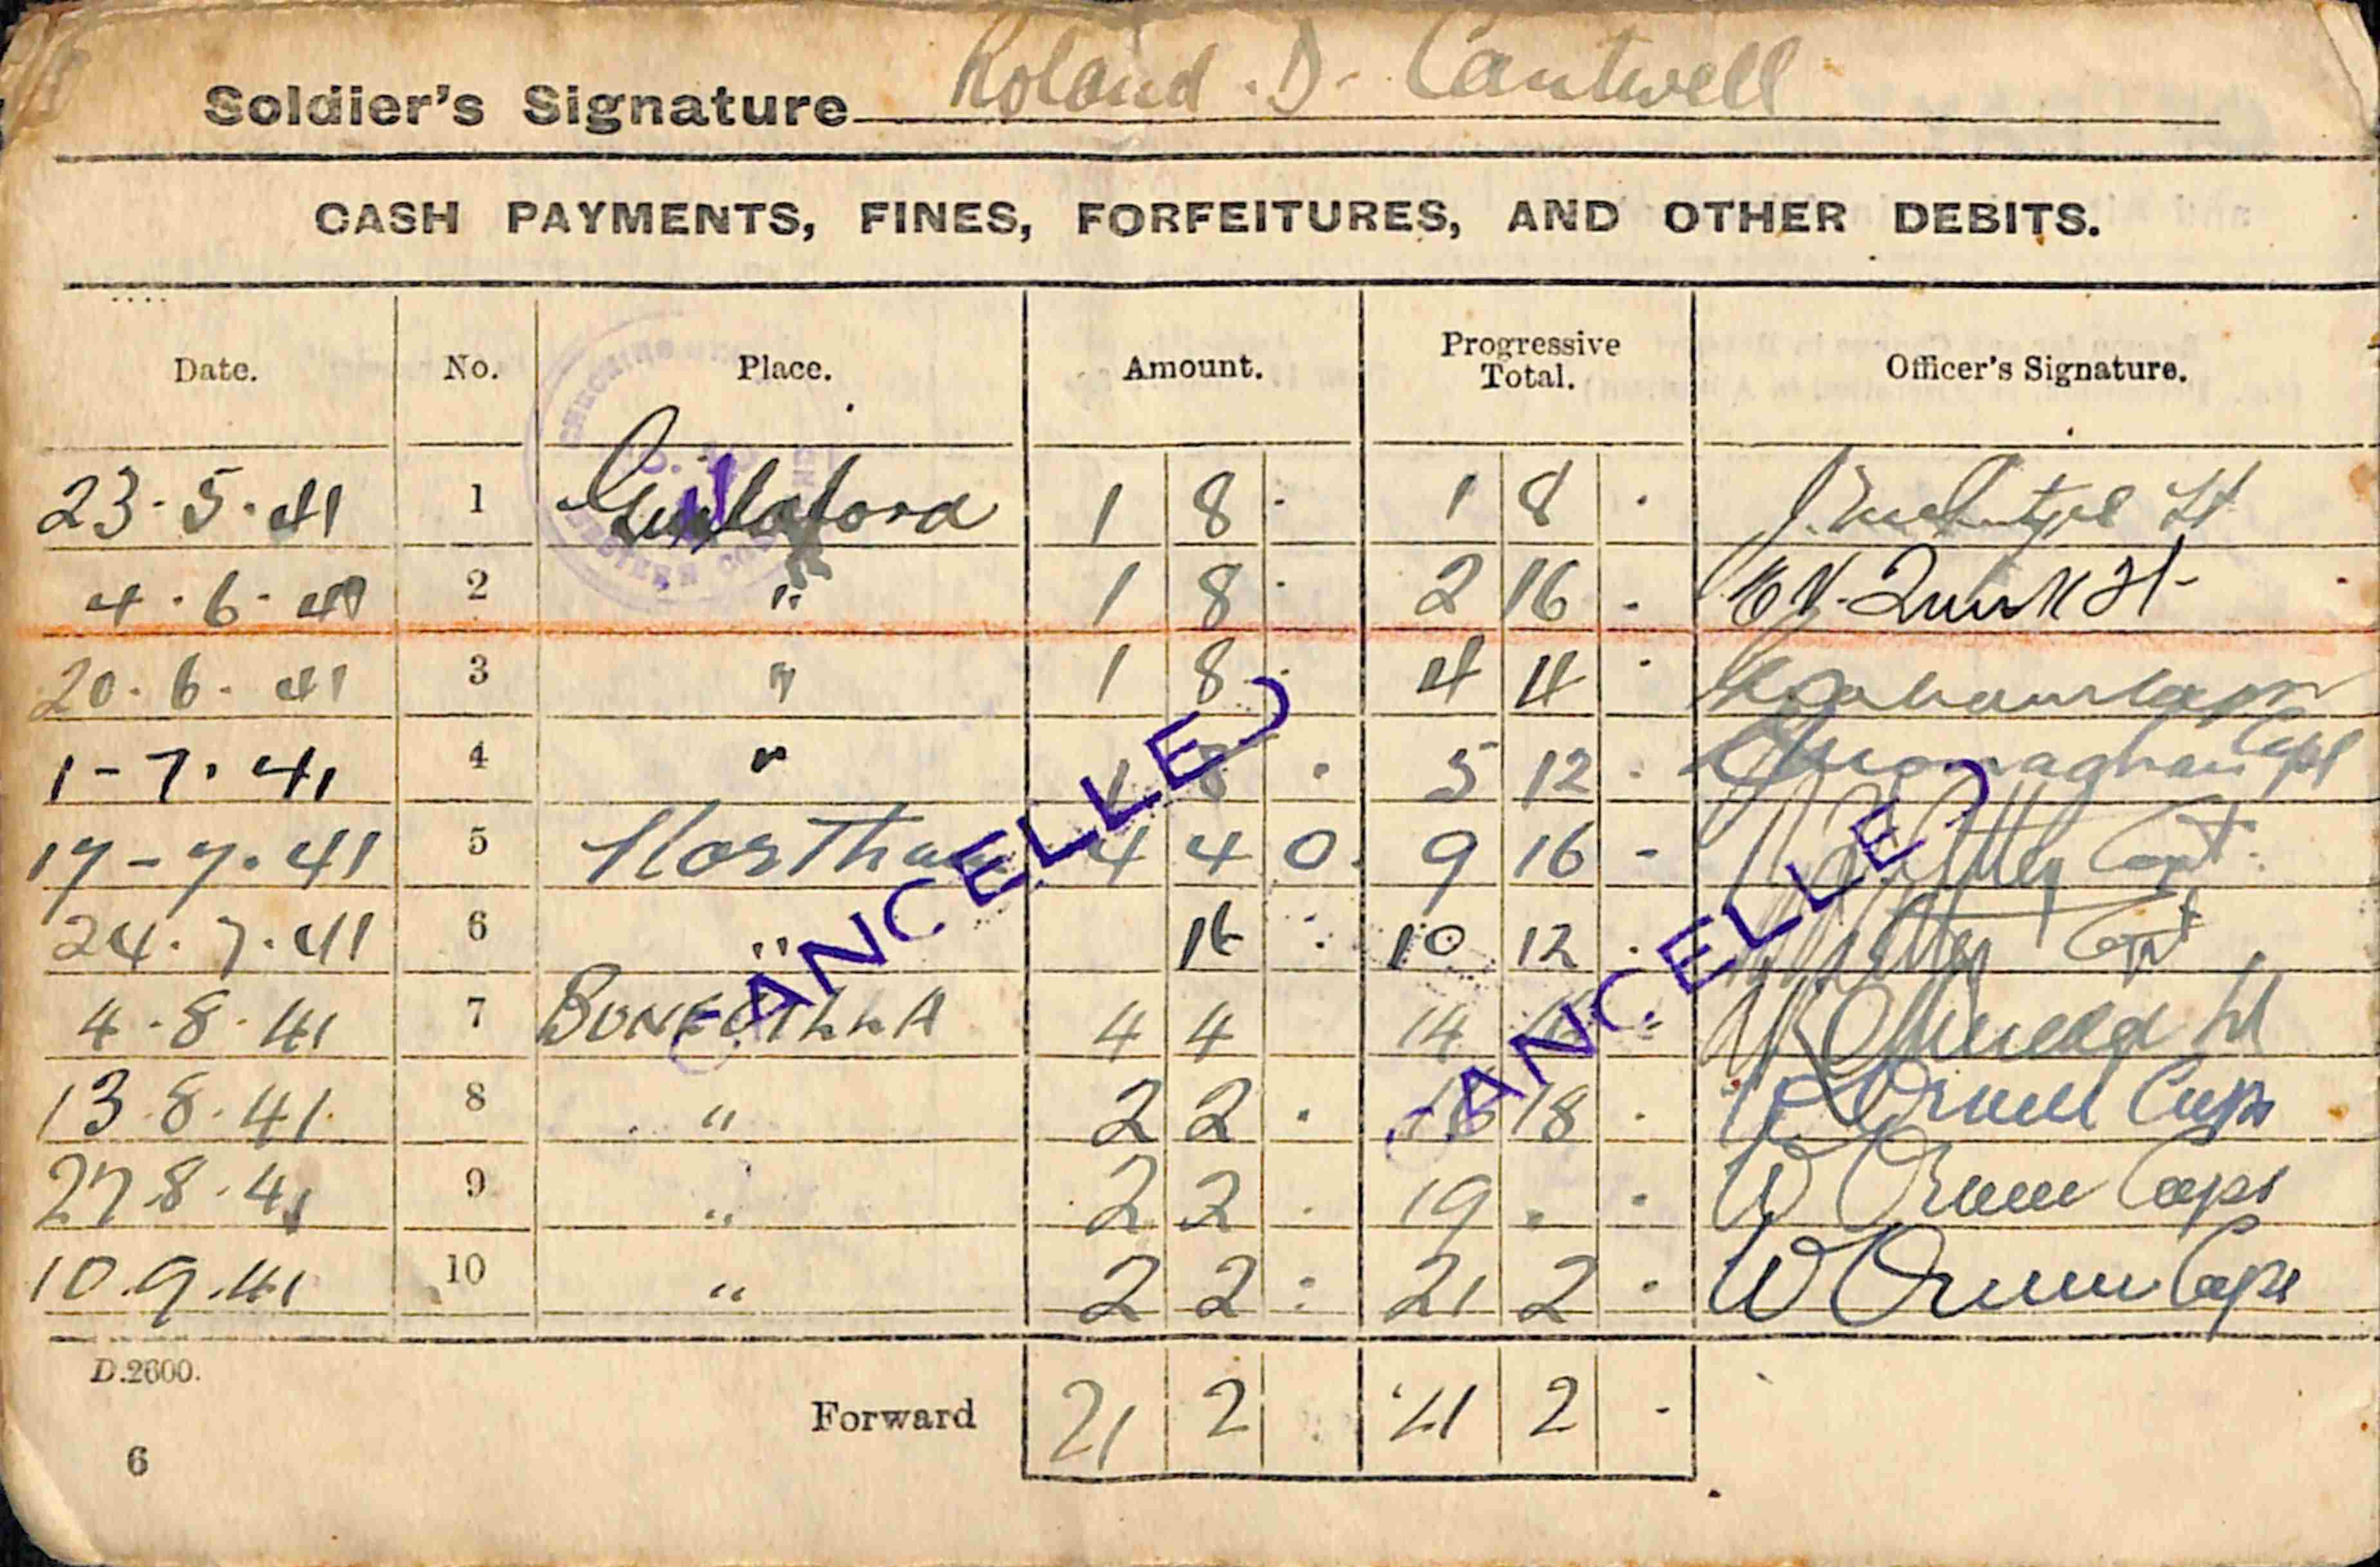 Soldier's Signature Roland . D. Cantwell
CASH PAYMENTS, FINES, FORFEITURES, AND OTHER DEBITS.
Date. No. Place. Amount. Progressive Total. Officer's Signature.
23.5.41 1 Guildford 1 8 - 1 8 - Lt
4.6.41 2 " 1 8 - 2 16 - Lt
20.6.41 3 " 1 8 - 4 4 -
1-7.41 4 " 1 8 - 5 12 - Monaghan Capt
17-7.41 5 Northam 4 4 0 9 16 - Capt
24.7.41 6 " 16 - 10 12 - Capt
4.8.41 7 BONEGILLA 4 4 14 16 - Lt
13.8.41 8 " 2 2 - 16 18 - Capt
27.8.41 9 " 2 2 - 19 - - W Capt
10.9.41 10 " 2 2 - 21 2 - W Capt
CANCELLED
CANCELLED
D.2600.
Forward 21 2 21 2 -
6